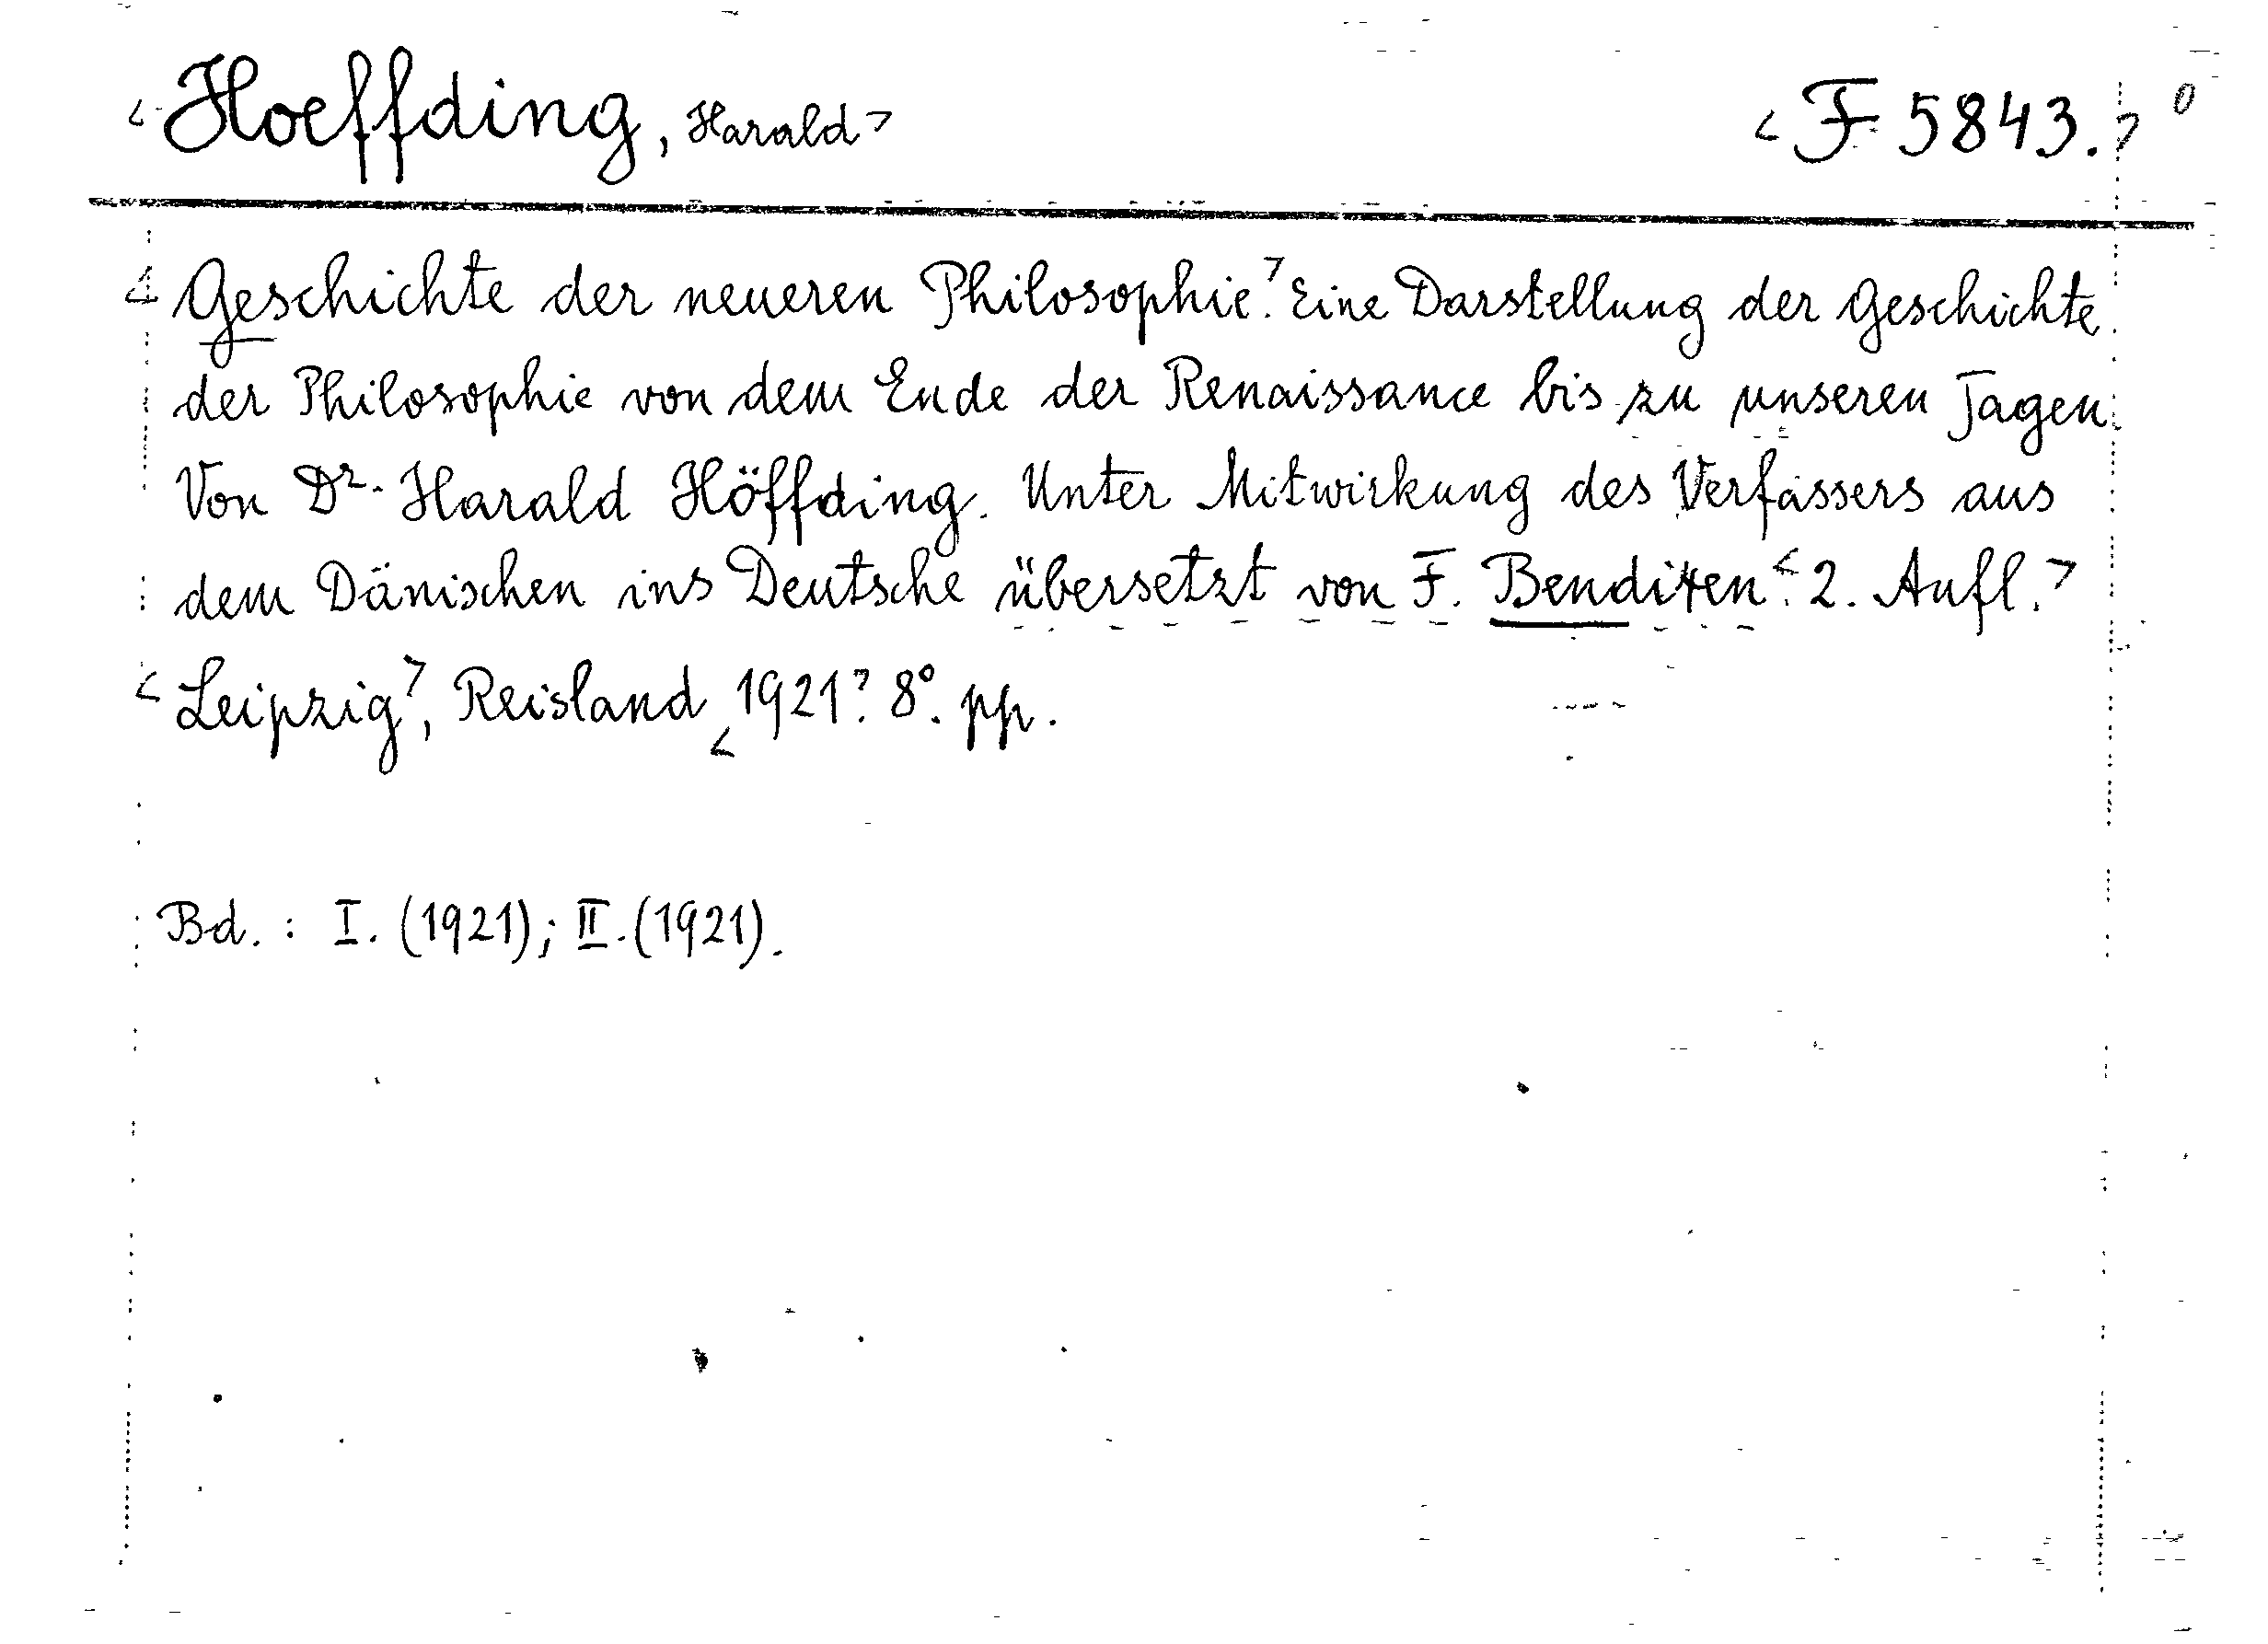 <Hoeffding, Harald> <F 5843.> 0
<Geschichte der neueren Philosophie>. Eine Darstellung der Geschichte
der Philosophie von dem Ende der Renaissance bis zu unseren Tagen.
Von Dr. Harald Höffding. Unter Mitwirkung des Verfassers aus
dem Dänischen ins Deutsche übersetzt von F. Bendixen. <2. Aufl.>
<Leipzig>, Reisland <1921>. 8°. pp.
Bd.: I. (1921); II. (1921).